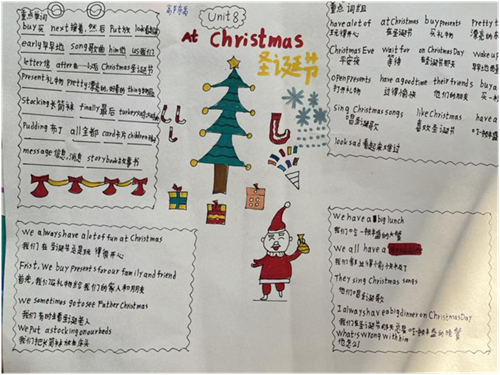 Unit 8
At Christmas
圣诞节
重点单词
buy 买 next 接着，然后 put 放 look
early 早早地 song 歌曲 him 他 us 我们
letter 信 after 在…后 Christmas 圣诞节
present 礼物 pretty 漂亮的 thing
Stocking 长筒袜 finally 最后 turkey
Pudding 布丁 all 全部 card 卡片 children
message 信息，消息 storybook 故事书
重点词组
have a lot of at Christmas buy presents pretty
在圣诞节 买礼物
Christmas Eve wait for on Christmas Day wake up
平安夜 等待 在圣诞节那天
open presents have a good time their friends buy a
打开礼物 过得愉快 他们的朋友
sing Christmas songs like Christmas have a
唱圣诞歌 喜欢圣诞节
look sad 看起来难过
We always have a lot of fun at Christmas
我们在圣诞节总是玩得很开心
Frist, we buy presents for our family and friend
首先，我们买礼物给我们的家人和朋友
we sometimes go to see Father Christmas
我们有时去看圣诞老人
We put a stocking on our beds
我们把长筒袜放在床头
We have a big lunch
我们吃一顿丰盛的午餐
We all have a
They sing Christmas songs
他们唱圣诞歌
I always have a big dinner on Christmas Day
What is wrong with him
他怎么了